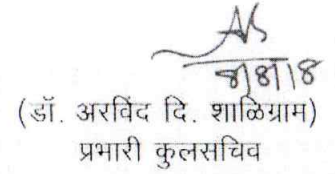 ८/८/१८
(डॉ. अरविंद दि. शाळिग्राम)
प्रभारी कुलसचिव